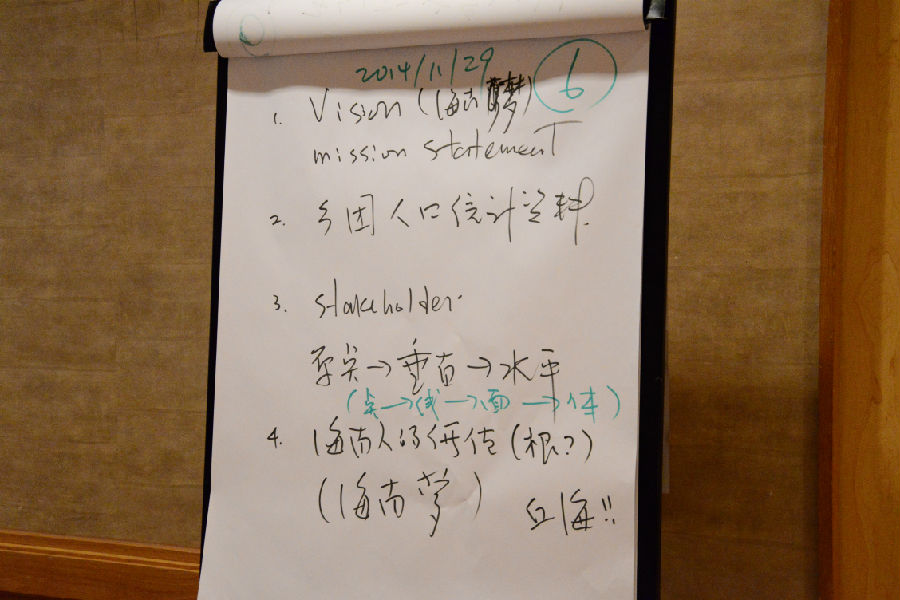 2014/11/29
6
1. Vision (海南梦)
mission statement
2. 各国人口统计资料.
3. stakeholder.
→垂直→水平
(点→线→面→体)
4. 海南人的价值(根?)
(海南梦)
海!!